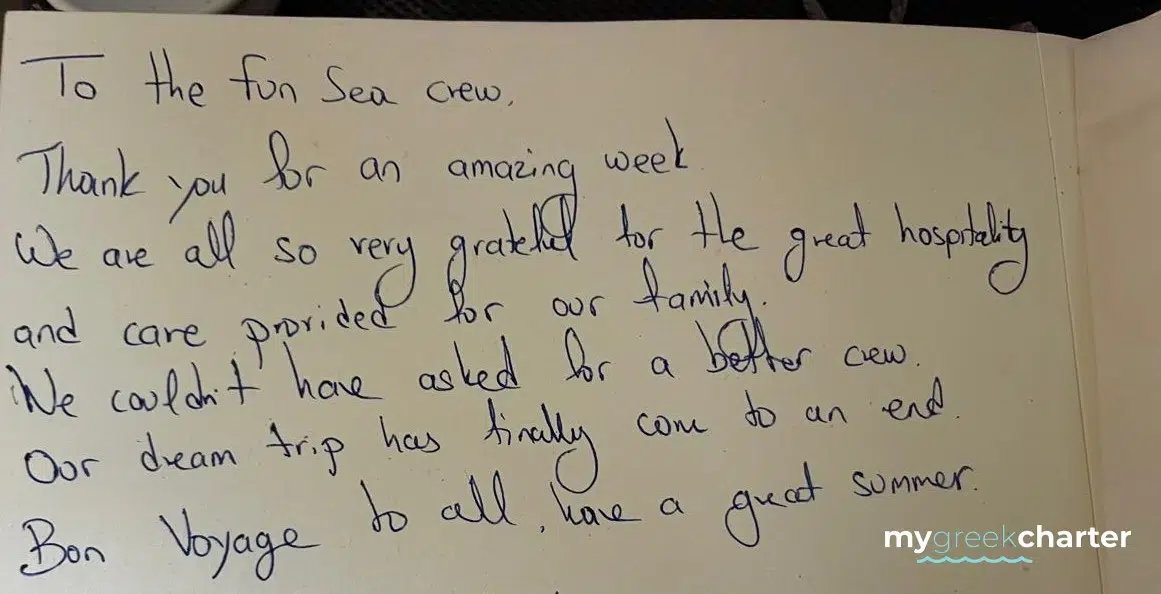 To the fun Sea crew,
Thank you for an amazing week.
We are all so very grateful for the great hospitality
and care provided for our family.
We couldn't have asked for a better crew.
Our dream trip has finally come to an end.
Bon Voyage to all, have a great summer.
mygreekcharter